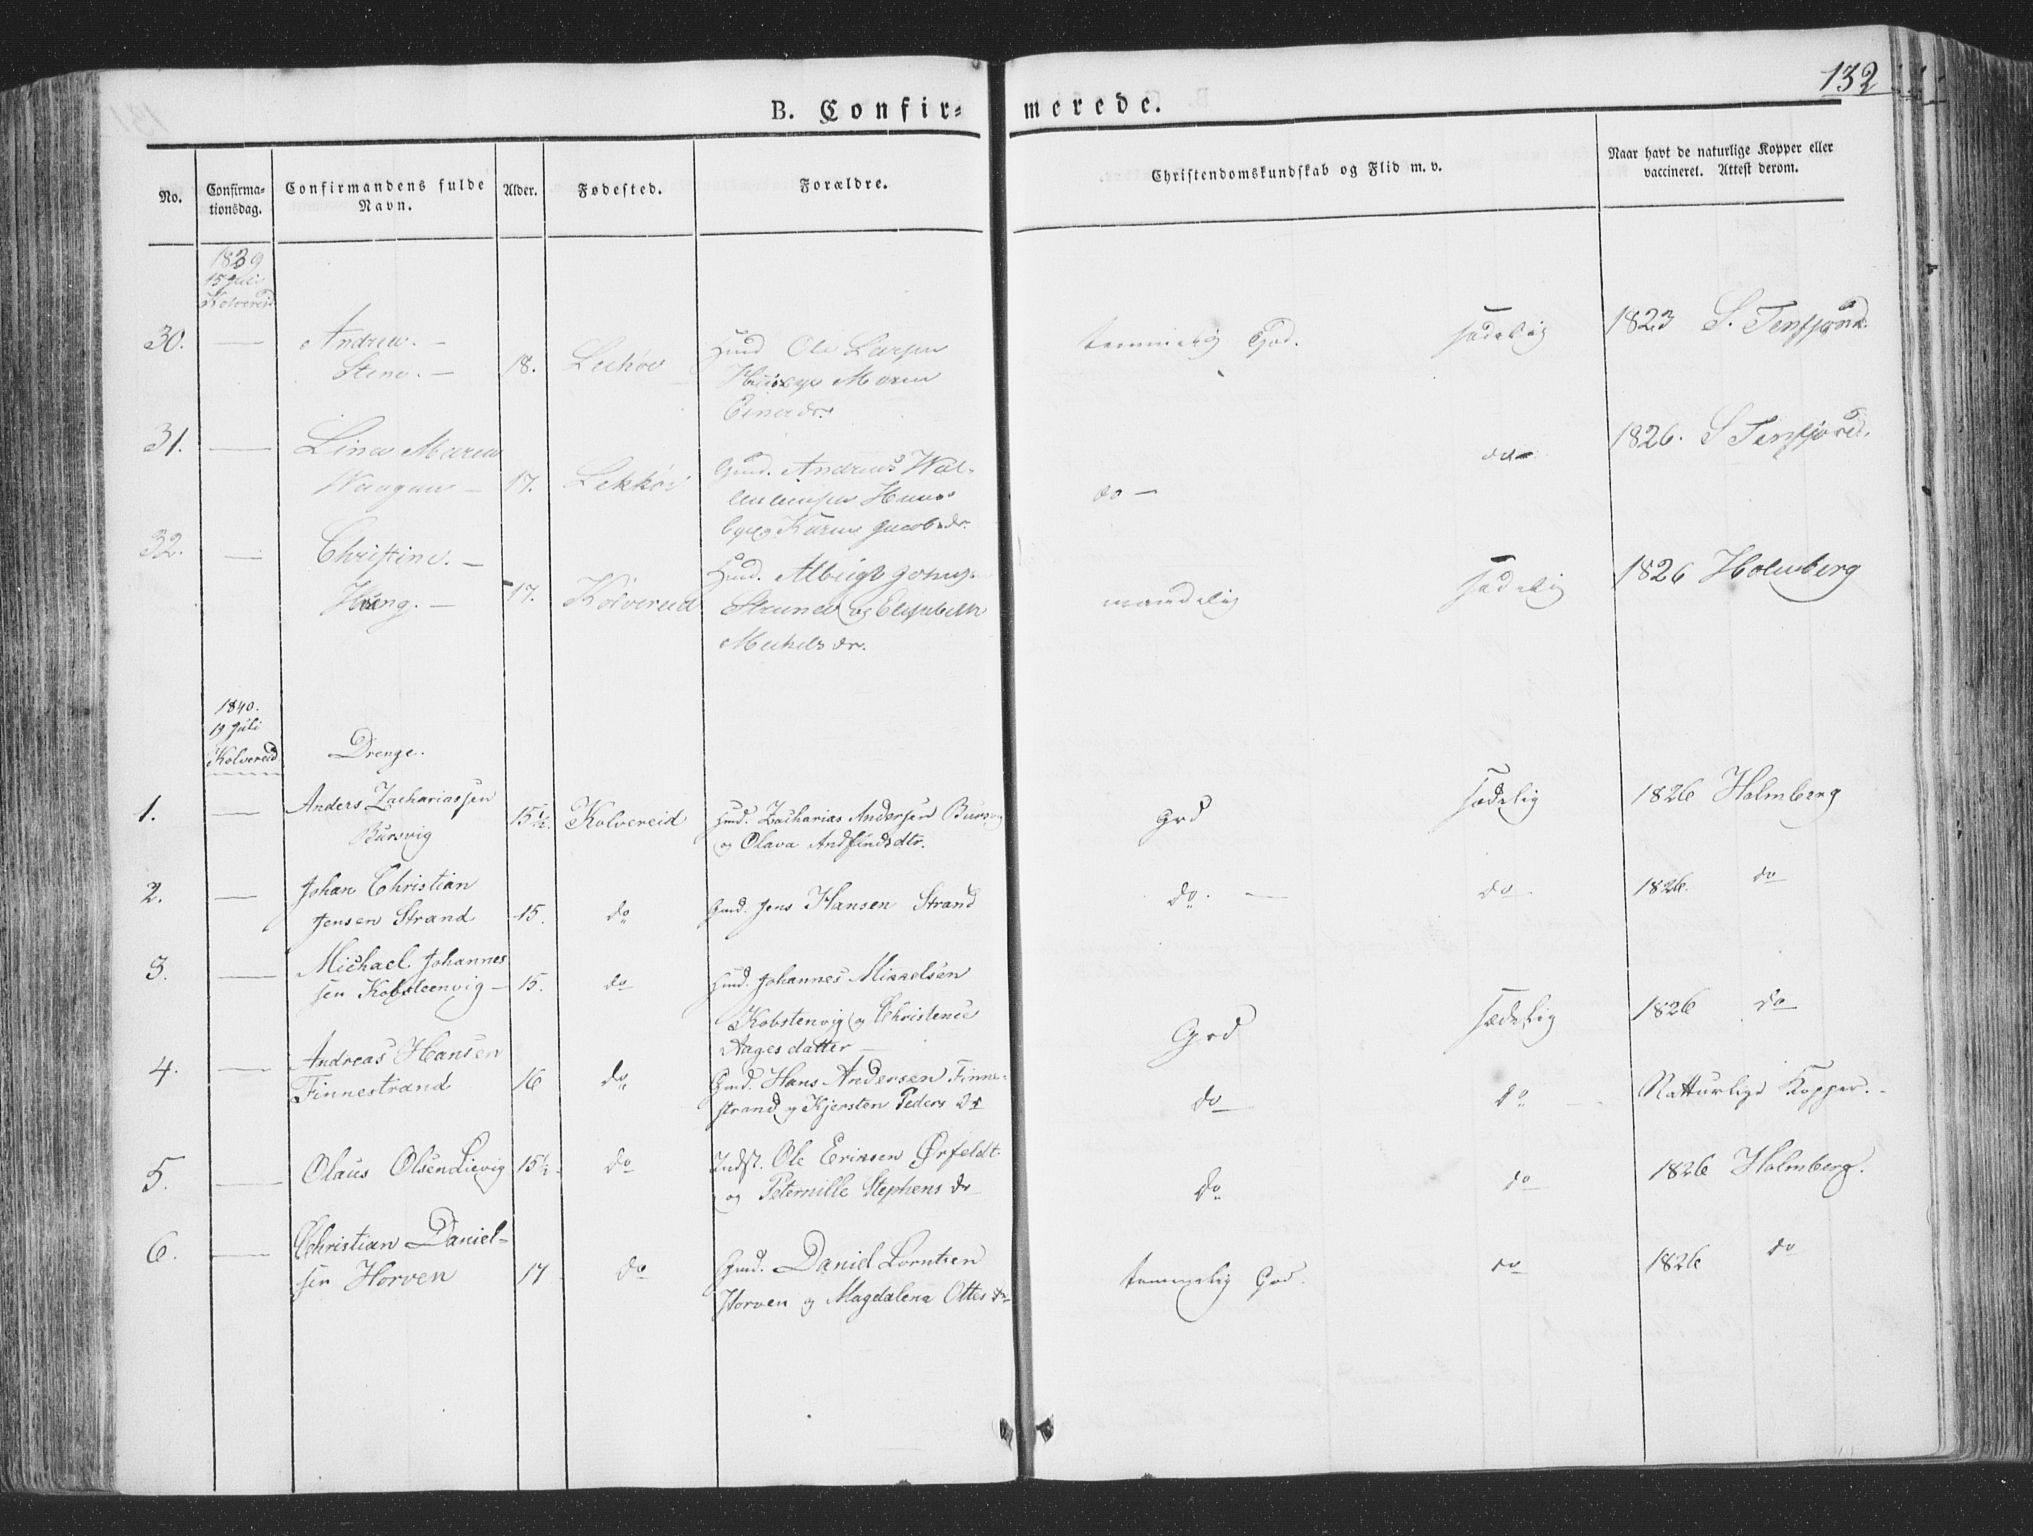 132
B. Confir- merede.
No. Confirma-tionsdag. Confirmandens fulde Navn. Alder. Fødested. Forældre. Christendomskundskab og Flid m. v. Naar havt de naturlige Kopper eller vaccineret. Attest derom.
1839
15 Juli
Kolvereid
30. — Andrea — Hmd Ole Larsen temmelig God. sædelig 1823 S. Tensfjord.
Stene. — 18. Lekhøe Maren
31. — Lina Maria Gmd. Andreas Wal- do — 1826. S Tensfjord.
Waagan — 17. Lekkøe do —
Karen Jacobsdr.
32. — Christine. — Hmd. Albrigt sædelig 1826 Holmberg
Høeng. — 17. Kolvereid og Elisabeth maadelig
Mikelsdr.
1840.
19 Juli
Kolvereid Drenge.
1. — Anders Zachariassen 15½ Kolvereid Hmd. Zacharias Andersen Bursvig God sædelig 1826 Holmberg
Bursvig og Olava Andfindsdtr.
2. — Johan Christian
Jensen Strand 15. do Gmd. Jens Hansen Strand do. — do 1826. do
3. — Michael Johannes
sen Kobsteenvig — 15. do Hmd. Johannes Mikkelsen
Kobstenvig og Christence God sædelig 1826 do
Aagesdatter —
4. — Andreas Hansen
Finnestrand 16 do Gmd. Hans Andersen Finne- do do Natturlige Kopper.
strand og Kjersten Peders dr
5. — Olaus Olsen Lievig 15½ do Indst. Ole Eriksen Ørfeldt do do 1826 Holmberg.
og Peternille Stephens dr
6. — Christian Daniel-
sen Horven 17 do Gmd. Daniel Lorntsen temmelig God. do 1826 do
Horven og Magdalena Ottes dr